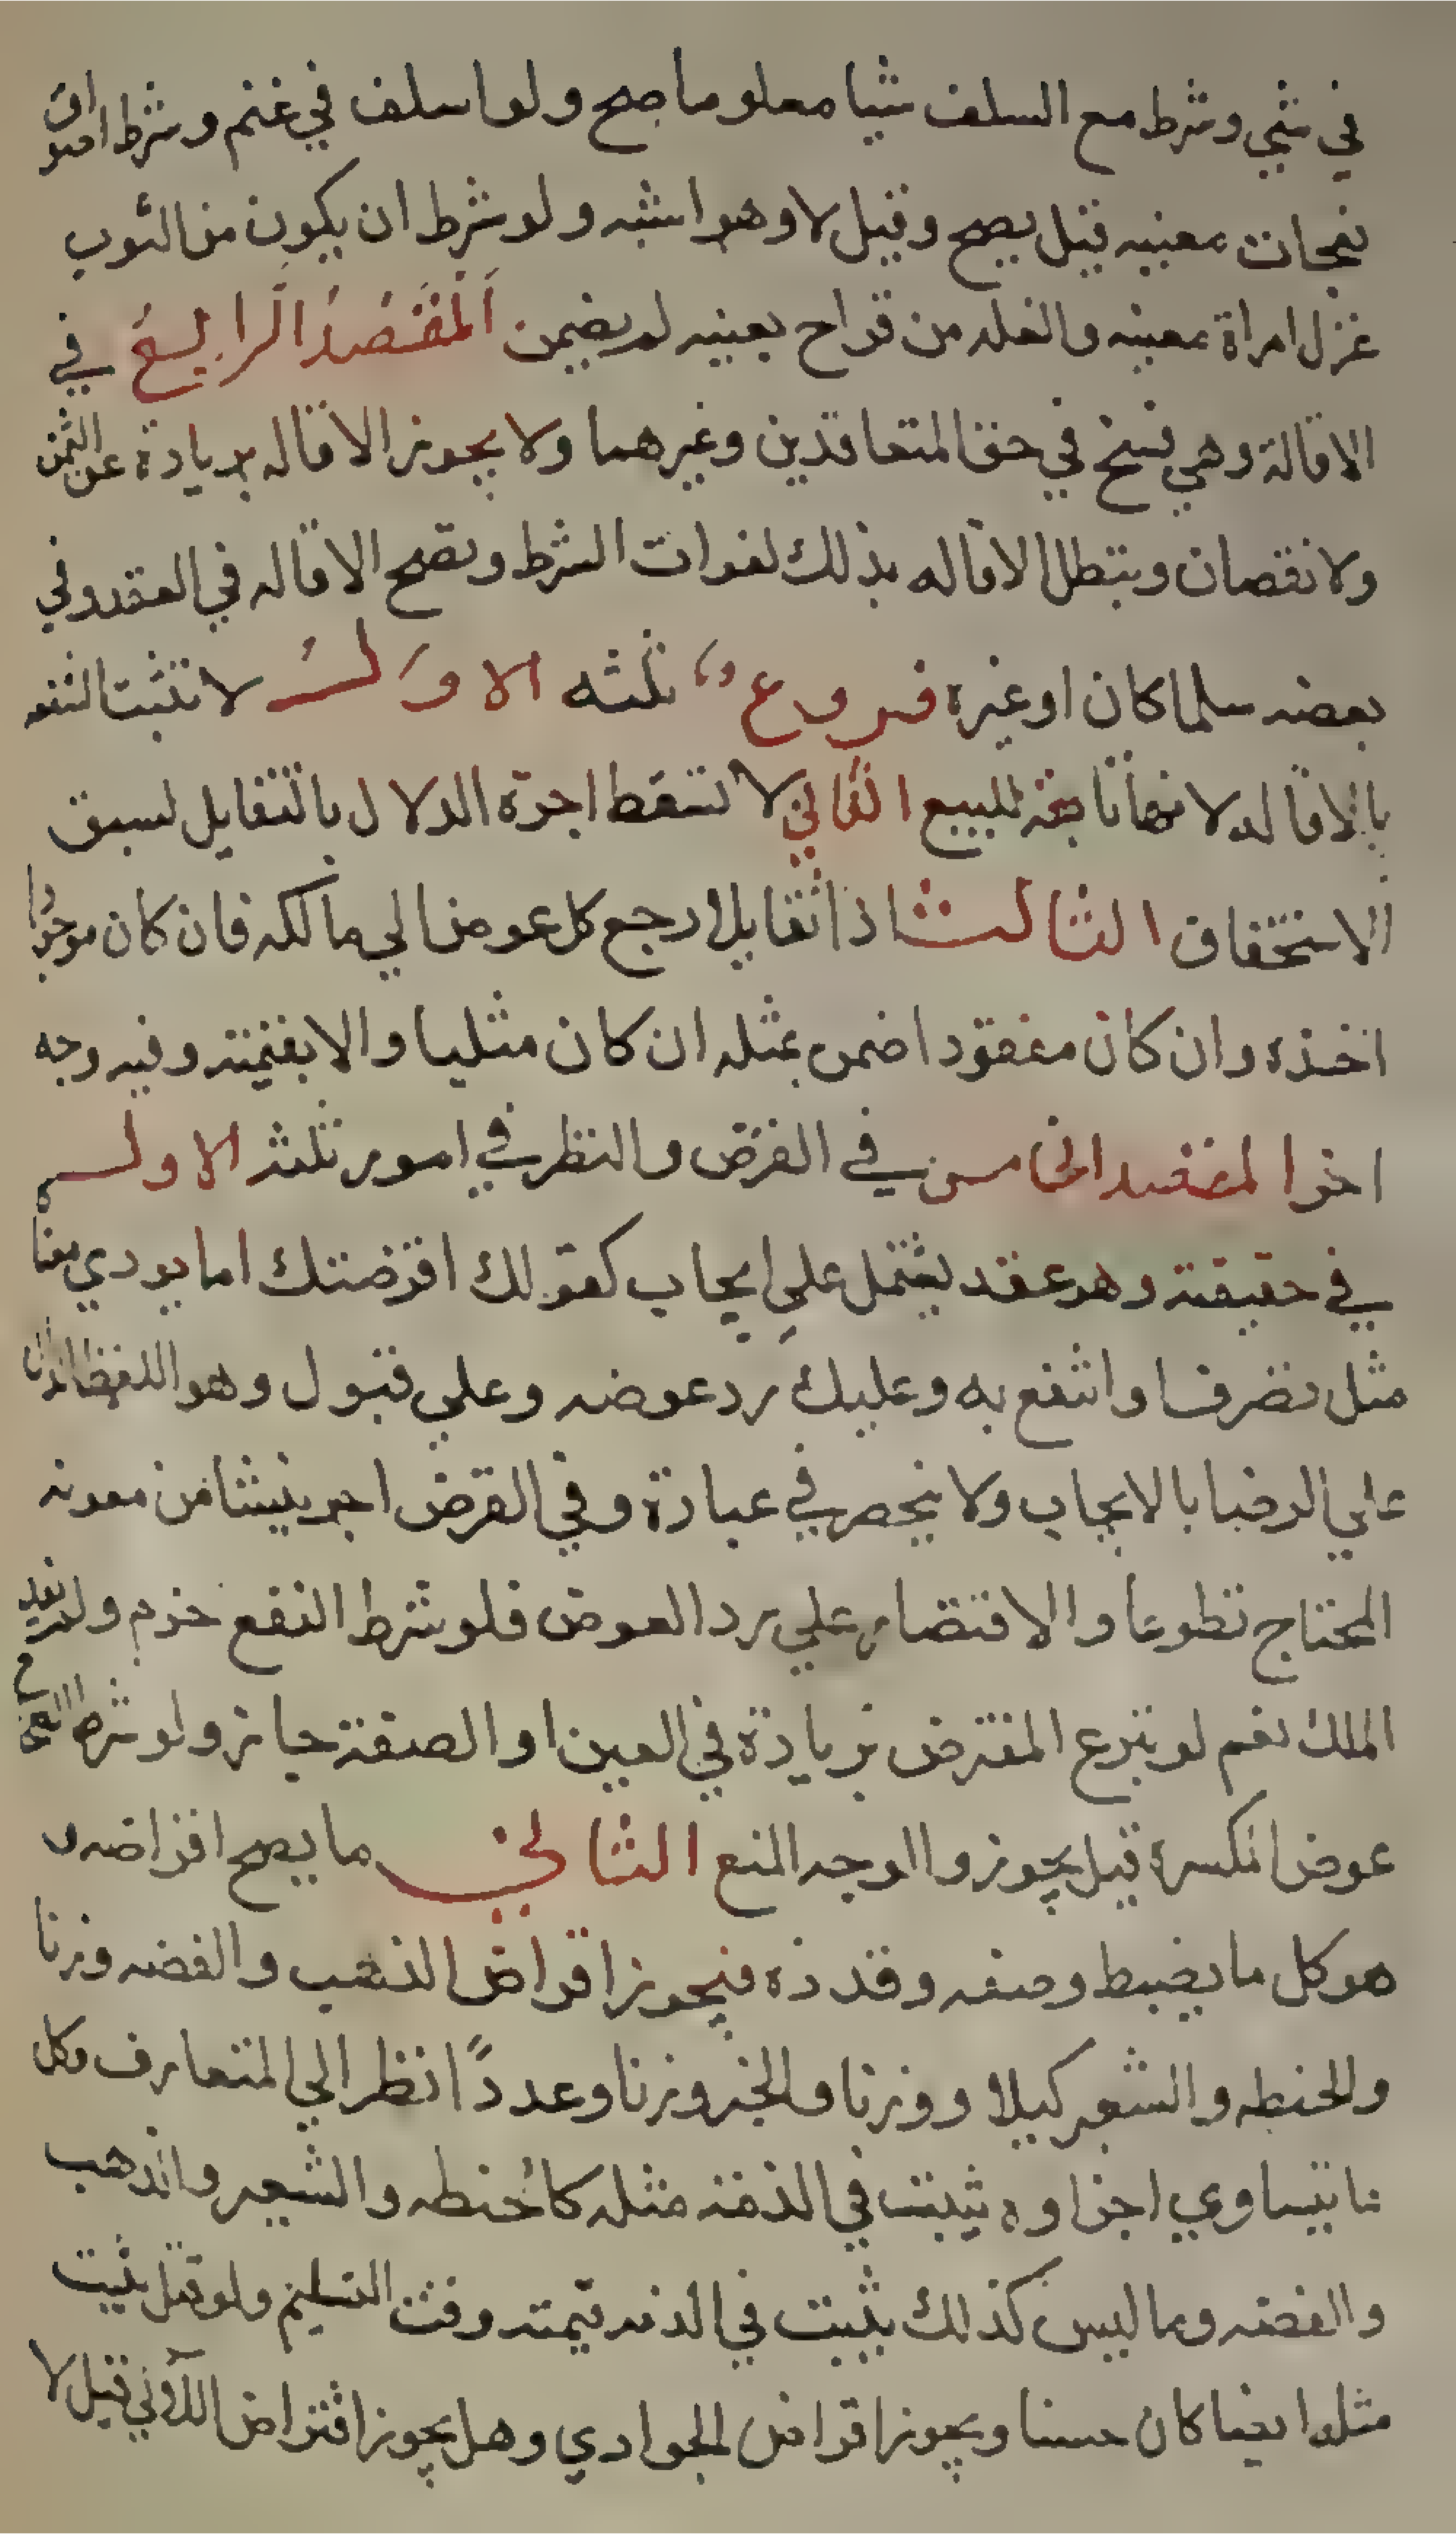 في شي وشرط مع السلف شيا معلوما صح ولو اسلف في غنم وشرط اصواف
نعجات معينه قيل يصح وقيل لا وهو اشبه ولو شرط ان يكون من الثوب
غزل امراة معينه والغله من قراح بعينه لم يضمن المقصد الرابع في
الاقالة وهي فسخ في حق المتعاقدين وغيرهما ولا يجوز الاقاله بزيادة عن الثمن
ولا نقصان وتبطل الاقاله بذلك لفوات الشرط وتصح الاقاله في العقد وفي
بعضه سلما كان او غيره فروع ثلثه الاول لا تثبت الشفعه
بالاقاله لانها تابعة للبيع الثاني لا تسقط اجرة الدلال بالتقايل لسبق
الاستحقاق الثالث اذا تقايلا رجع كل عوض الي مالكه فان كان موجودا
اخذه وان كان مفقودا ضمن بمثله ان كان مثليا والا بقيمته وفيه وجه
اخر المقصد الخامس في القرض والنظر في امور ثلثه الاول
في حقيقته وهو عقد يشتمل علي ايجاب كقولك اقرضتك او ما يودي معناه
مثل تصرف او انتفع به وعليك رد عوضه وعلي قبول وهو اللفظ الدال
علي الرضا بالايجاب ولا ينحصر في عبارة وفي القرض اجر ينشا من معونه
المحتاج تطوعا والاقتصار علي رد العوض فلو شرط النفع حرم ولم يفد
الملك نعم لو تبرع المقترض بزيادة في العين او الصفة جاز ولو شرط الصحاح
عوض المكسرة قيل يجوز والوجه المنع الثاني ما يصح اقراضه و
هو كل ما يضبط وصفه وقدره فيجوز اقراض الذهب والفضه وزنا
والحنطه والشعير كيلا ووزنا والخبز وزنا وعددا نظرا الي المتعارف وكل
ما يتساوي اجزاوه يثبت في الذمة مثله كالحنطه والشعير والذهب
والفضه وما ليس كذلك يثبت في الذمه قيمته وقت التسليم ولو قيل يثبت
مثله ايضا كان حسنا ويجوز اقراض الجواري وهل يجوز اقتراض اللالي قيل لا